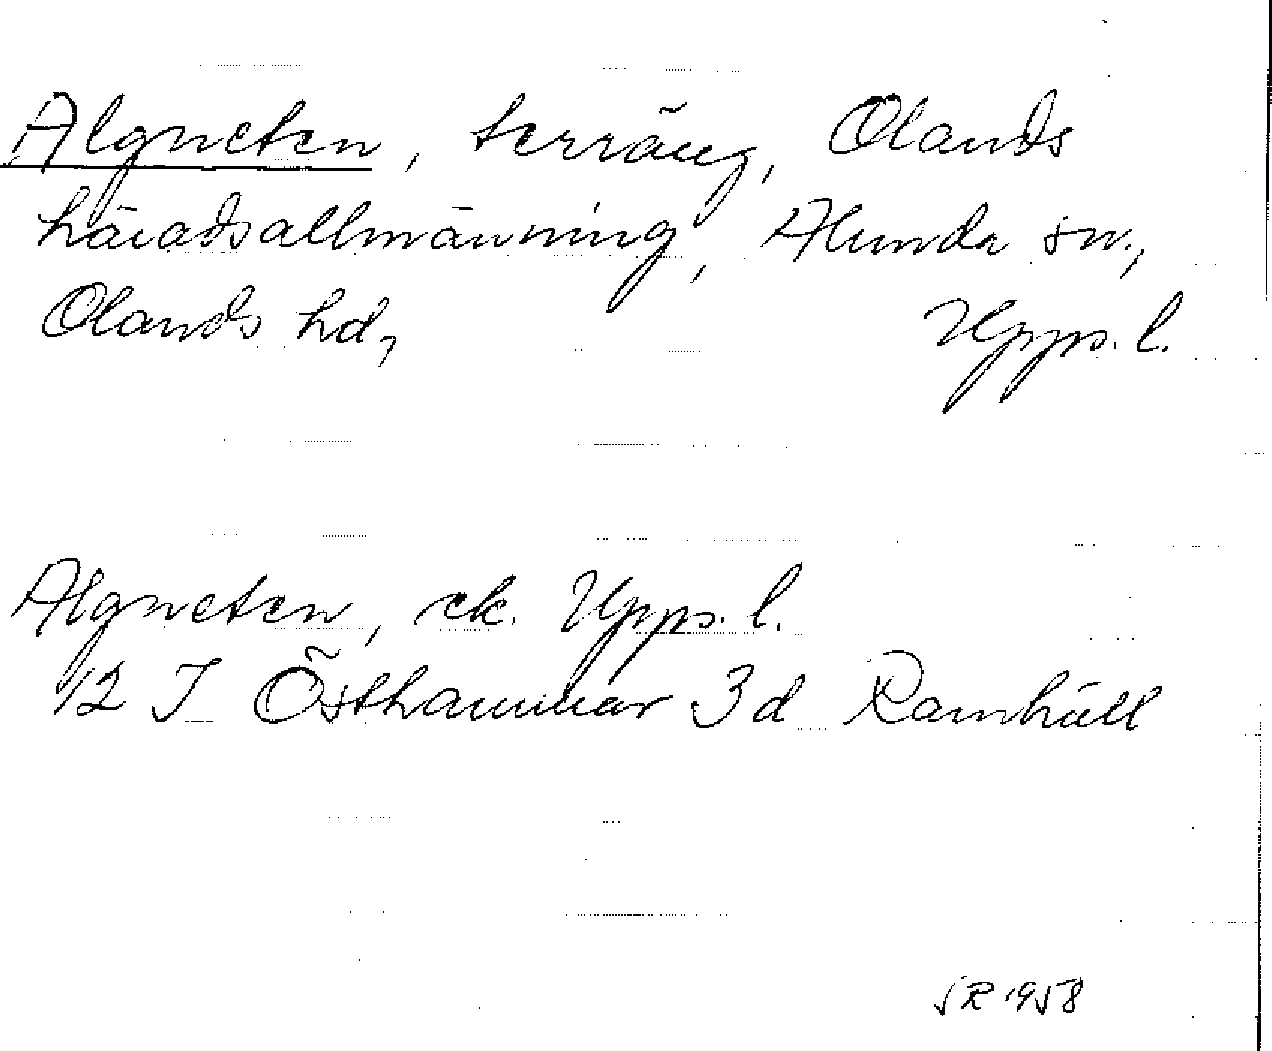 Algneten, terräng, Olands
häradsallmänning, Alunda sn.,
Olands hd,  Upps. l.
Algneten, ek. Upps. l.
12 I Östhammar 3d Ramhäll
SR 1958